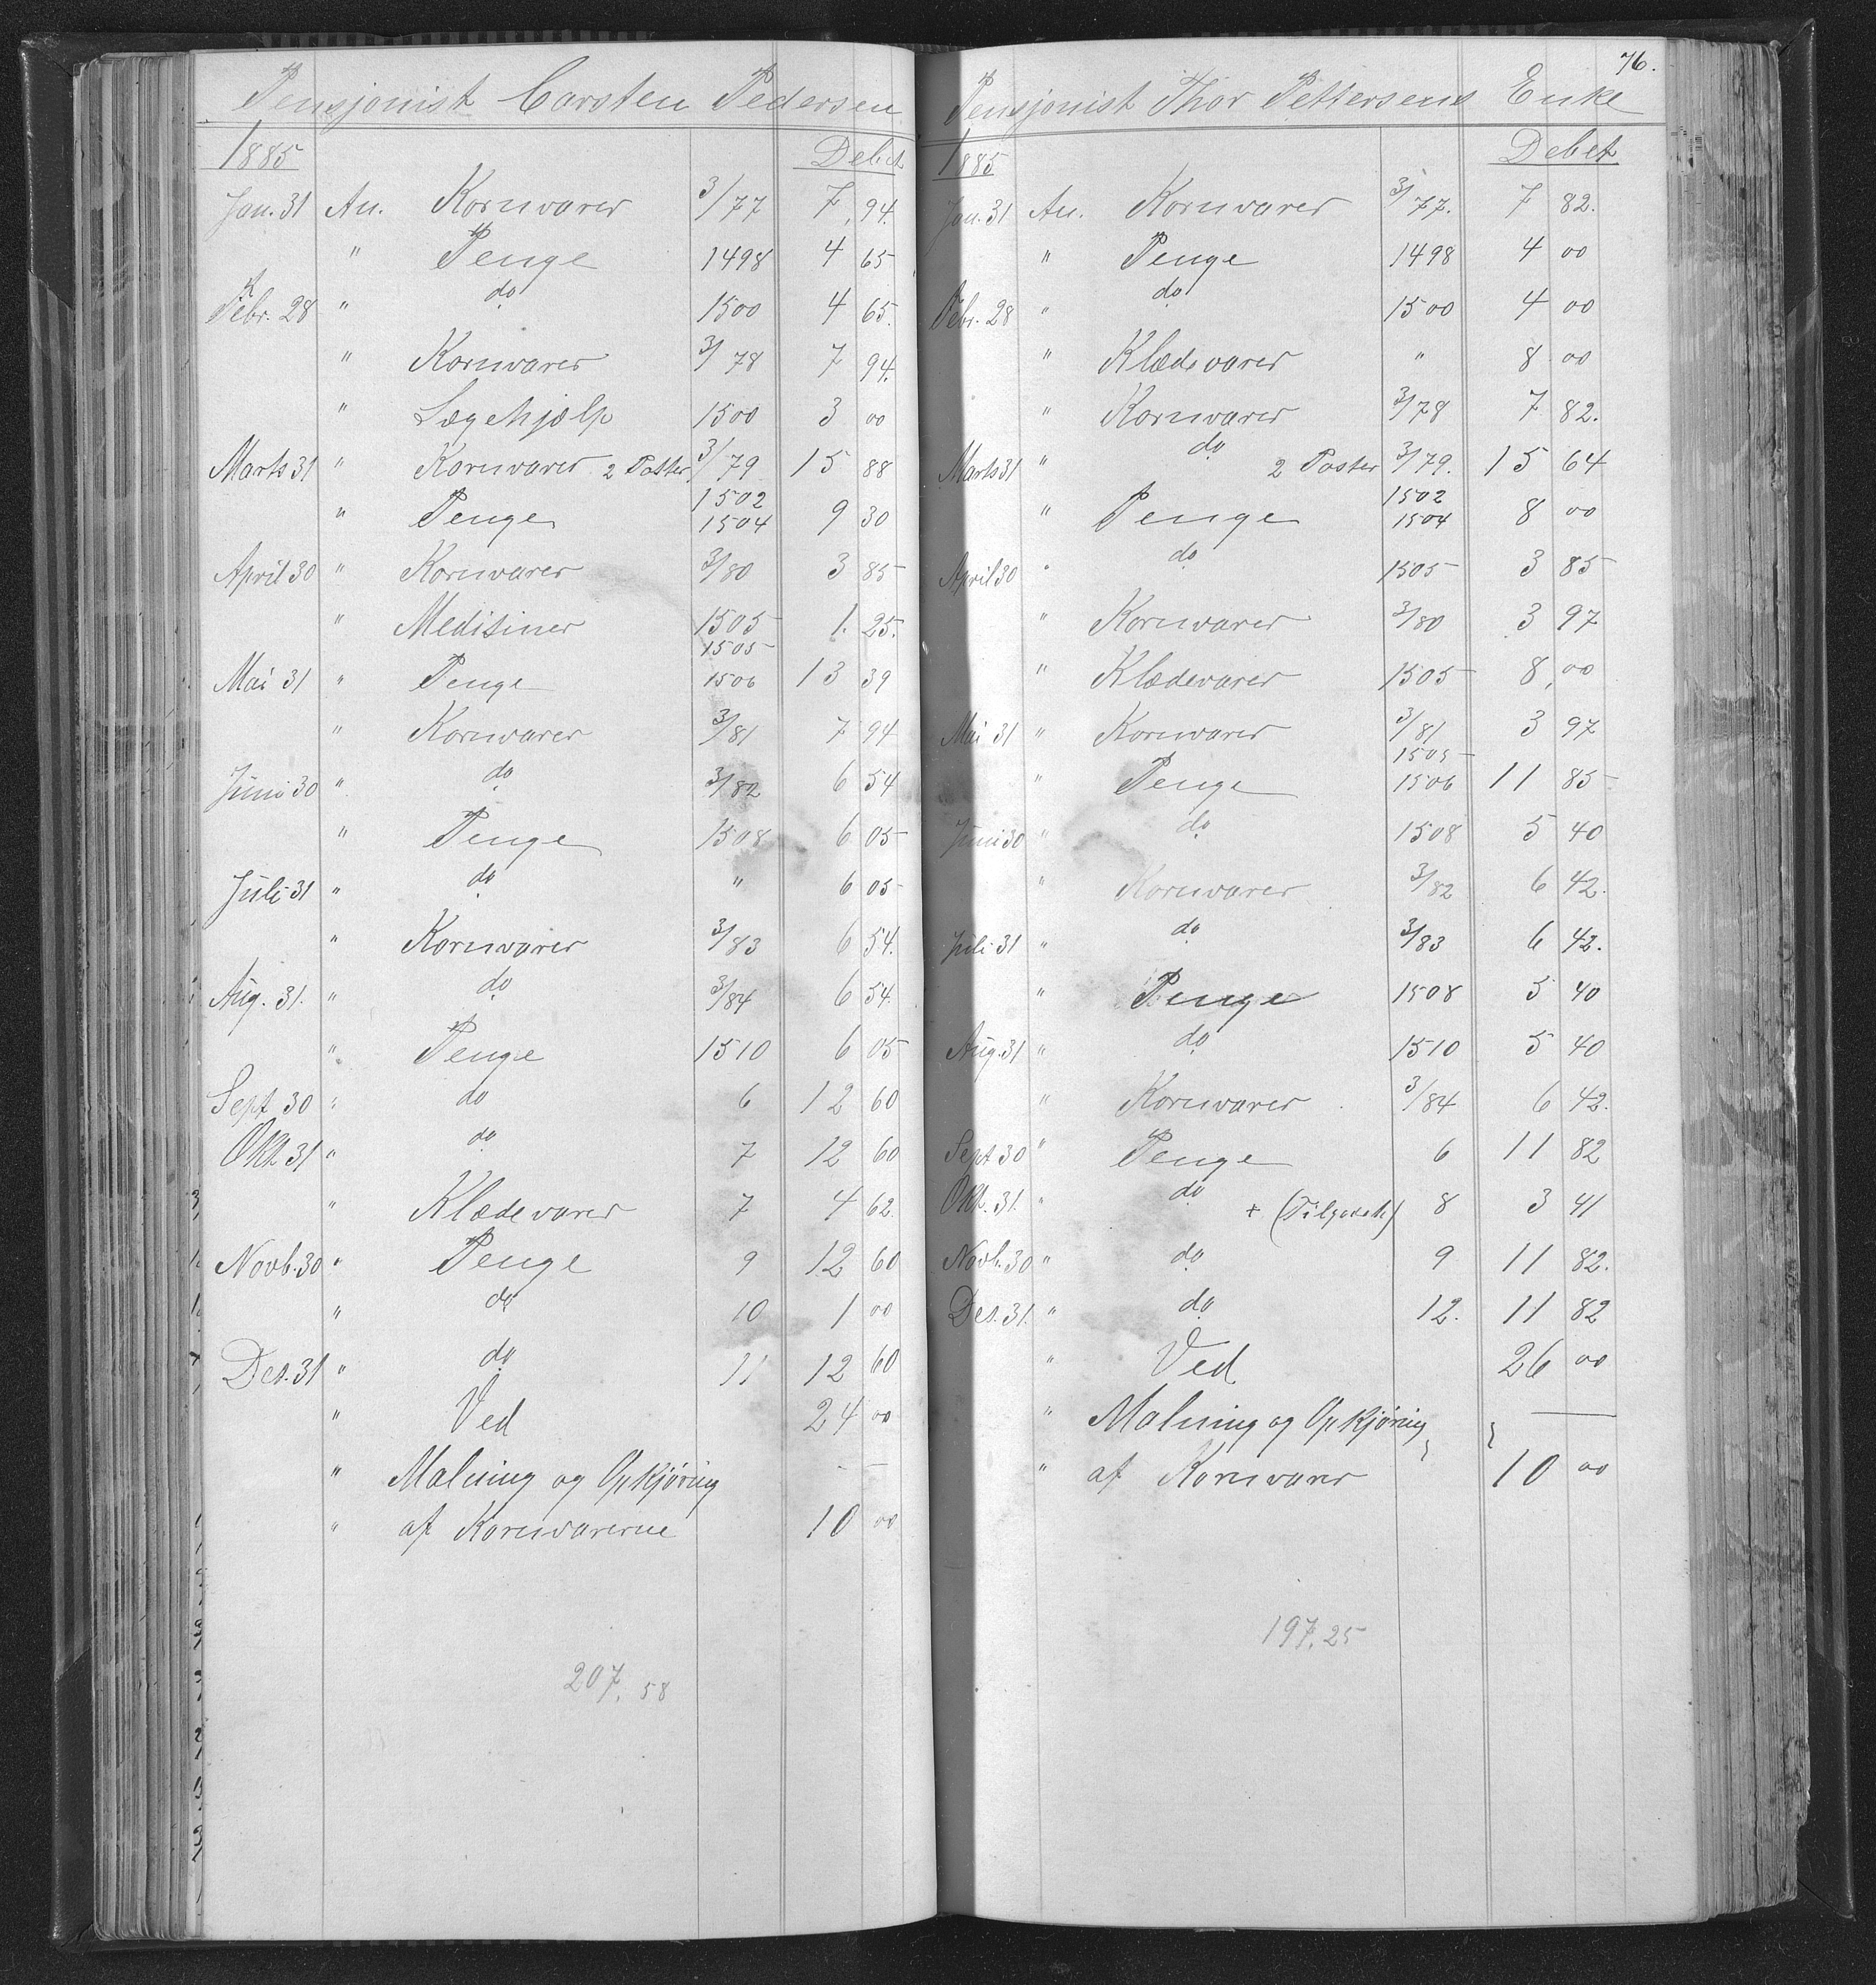 Pensjonist Carsten Pedersen
1885 Debet
Jan. 31 An. Kornvarer 3/77 7, 94.
" Penge 1498 4 65
Febr. 28 " do 1500 4 65.
" Kornvarer 3/78 7 94.
" Lægehjælp 1500 3 00
Marts 31 " Kornvarer 2 Poster 3/79 15 88
" Penge 1502 1504 9 30
April 30 " Kornvarer 3/80 3 85
" Medisiner 1505 1. 25.
Mai 31 " Penge 1505 1506 13 39
" Kornvarer 3/81 7 94
Juni 30 " do 3/82 6 54
" Penge 1508 6 05
Juli 31 " do " 6 05
" Kornvarer 3/83 6 54.
Aug. 31. " do 3/84 6 54.
" Penge 1510 6 05
Sept 30 " do 6 12 60
Okt 31 " do 7 12 60
" Klædevarer 7 4 62.
Novb. 30 " Penge 9 12 60
" do 10 1 00
Des. 31 " do 11 12 60
" Ved 24 00
" Malning og Opkjøring
" af Kornvarerne 10 00
207, 58
76.
Pensjonist Thor Pettersens Enke
1885 Debet
Jan. 31 An. Kornvarer 3/77. 7 82.
" Penge 1498 4 00
Febr. 28 " do 1500 4 00
" Klædevarer " 8 00
" Kornvarer 3/78 7 82.
Marts 31 " do 2 Poster 3/79. 15 64
" Penge 1502 1504 8 00
April 30 " do 1505 3 85
" Kornvarer 3/80 3 97
" Klædevarer 1505 8, 00
Mai 31 " Kornvarer 3/81 3 97
" Penge 1505 1506 11 85
Juni 30 " do 1508 5 40
" Kornvarer 3/82 6 42.
Juli 31 " do 3/83 6 42.
" Penge 1508 5 40
Aug. 31 " do 1510 5 40
" Kornvarer 3/84 6 42.
Sept 30 " Penge 6 11 82
Okt. 31. " do + 8 3 41
Novb. 30 " do 9 11 82.
Des. 31. " do 12. 11 82
" Ved 26 00
" Malning og Opkjøring
" af Kornvarer 10 00
197, 25